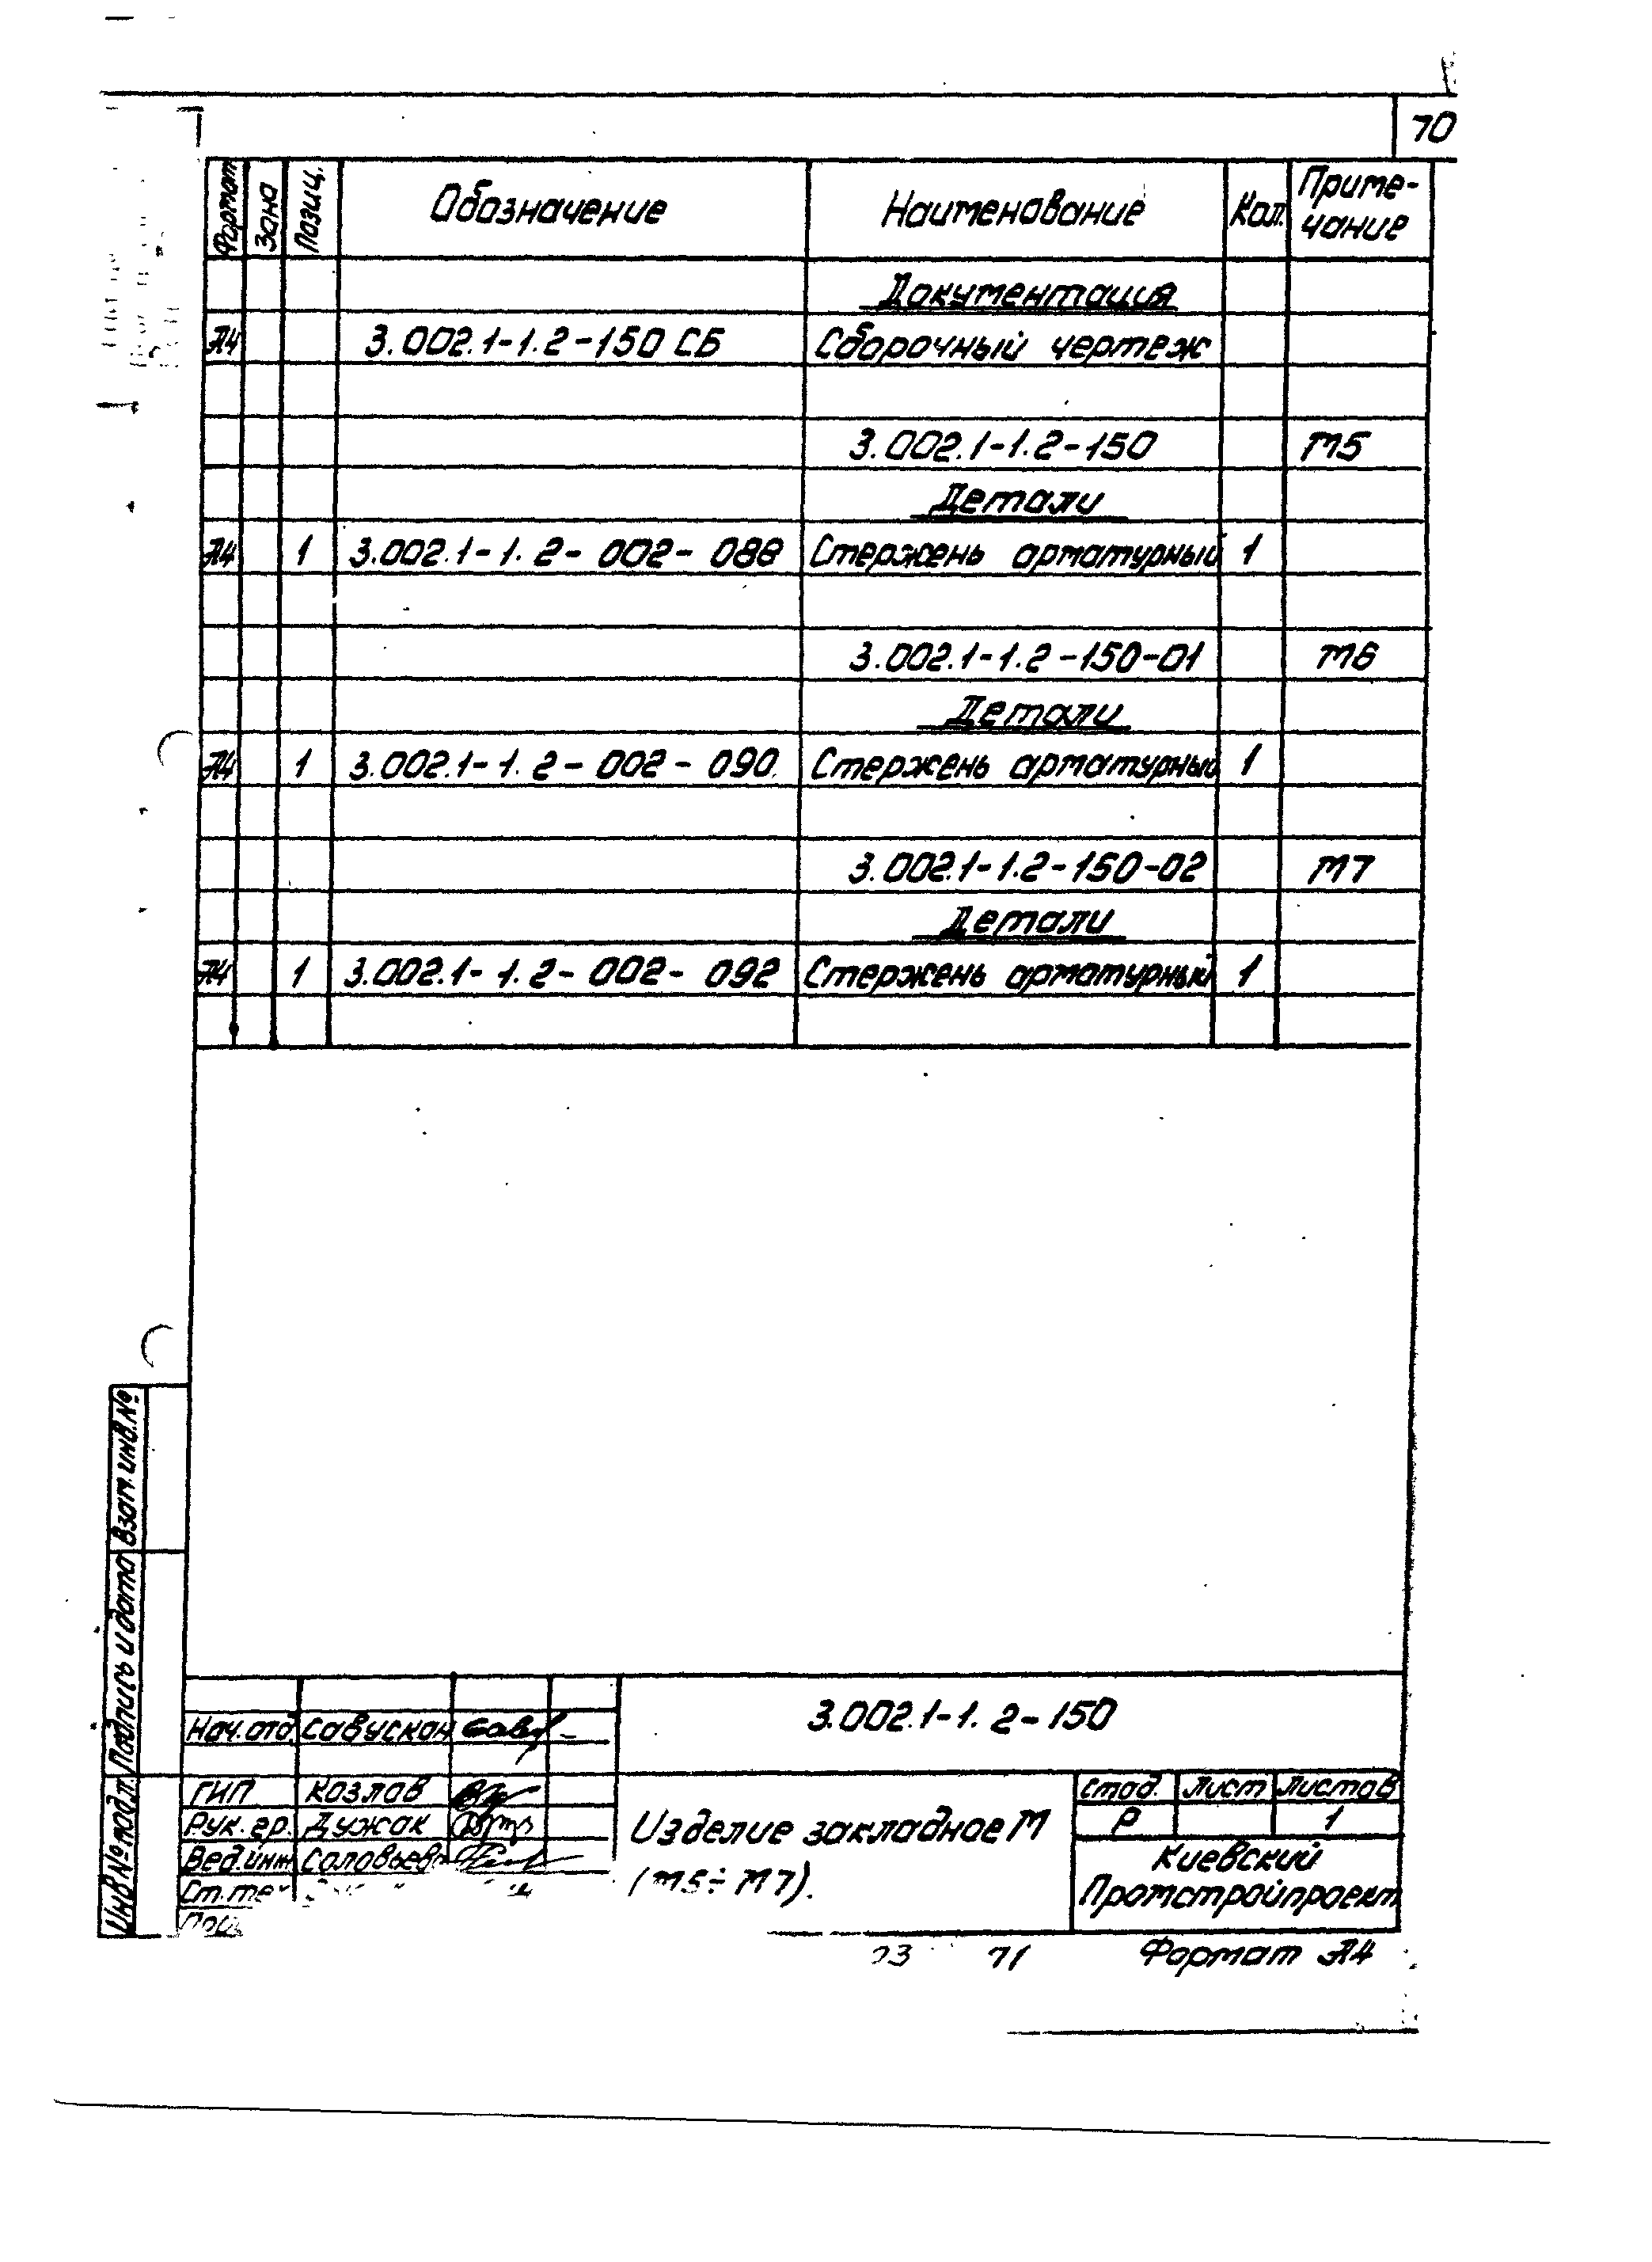 70
Формат Зона Позиц. Обозначение Наименование Кол. Приме-
чание
Документация
А4 3.002.1-1.2-150 СБ Сборочный чертеж
3.002.1-1.2-150 М5
Детали
А4 1 3.002.1-1.2-002-088 Стержень арматурный 1
3.002.1-1.2-150-01 М6
Детали
А4 1 3.002.1-1.2-002-090 Стержень арматурный 1
3.002.1-1.2-150-02 М7
Детали
А4 1 3.002.1-1.2-002-092 Стержень арматурный 1
Взам. инв. №
Подпись и дата
Инв № подл.
3.002.1-1.2-150
Нач. отд. Савускан
ГИП Козлов
Рук. гр. Дужак
Вед. инж Соловьева
Изделие закладное М
(М5÷М7).
Стад. Лист Листов
Р 1
Киевский
Промстройпроект
71
Формат А4